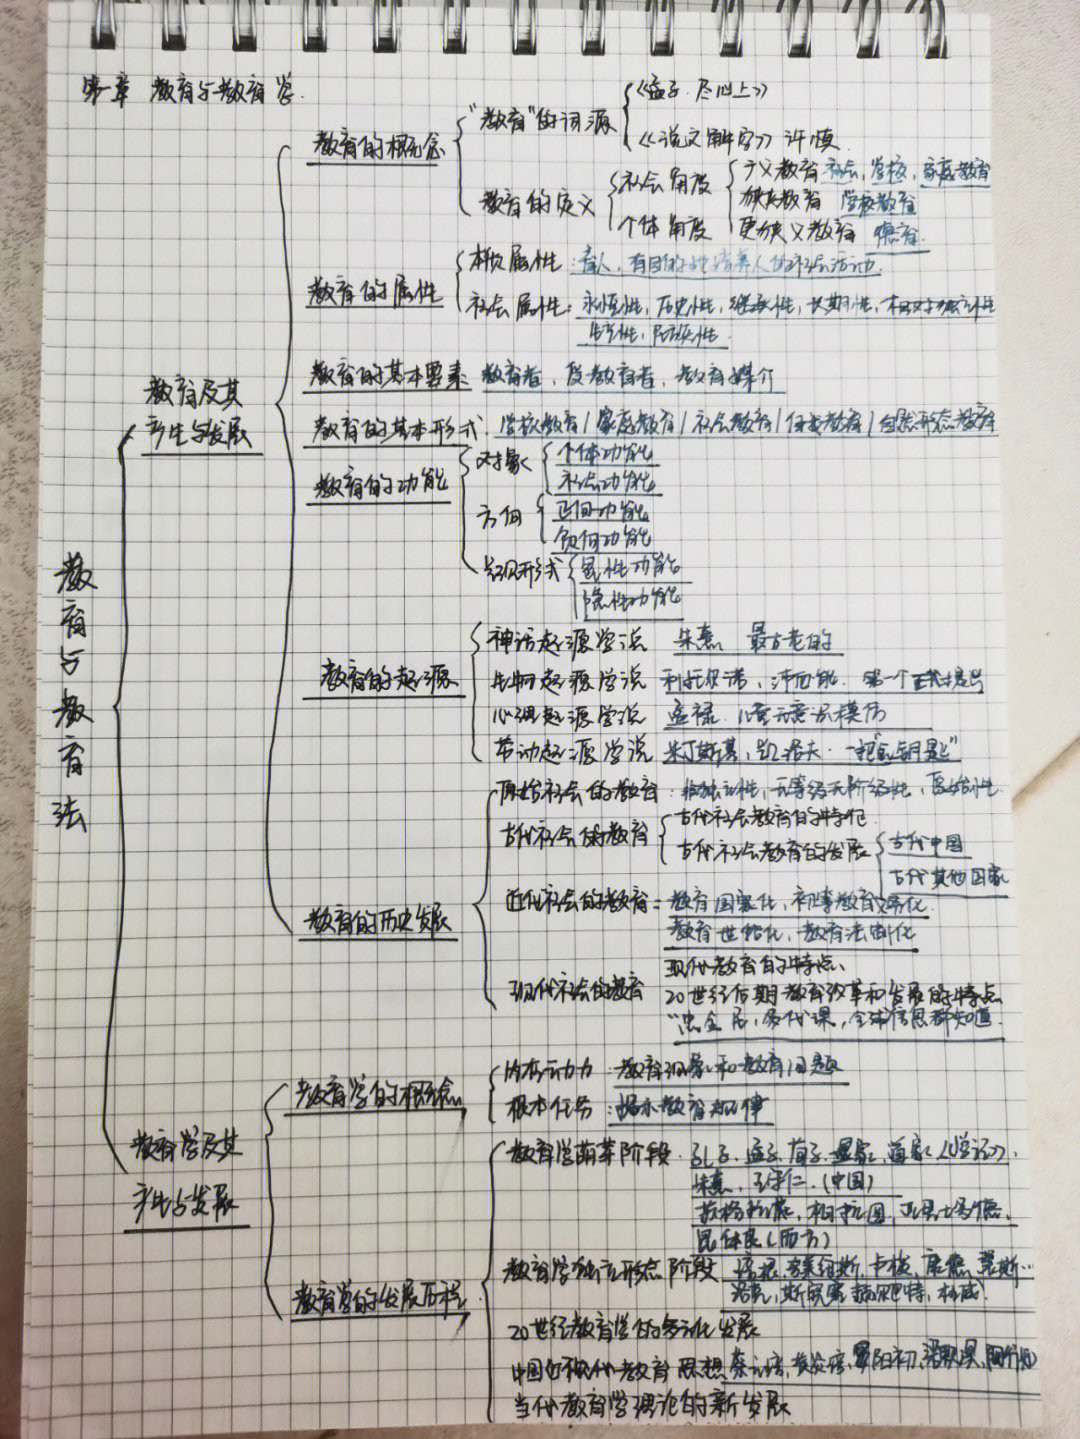 第一章 教育与教育学
教育与教育法
教育及其
产生与发展
教育的概念
"教育"的词源
《孟子·尽心上》
《说文解字》许慎
教育的定义
社会角度
广义教育 社会,学校,家庭教育
狭义教育 学校教育
更狭义教育 德育
个体角度
教育的属性
本质属性:育人,有目的地培养人的社会活动
社会属性:永恒性,历史性,继承性,长期性,相对独立性
生产性,民族性
教育的基本要素 教育者,受教育者,教育媒介
教育的基本形式 学校教育/家庭教育/社会教育/自我教育/自然形态教育
教育的功能
对象
个体功能
社会功能
方向
正向功能
负向功能
呈现形式
显性功能
隐性功能
教育的起源
神话起源学说 朱熹 最古老的
生物起源学说 利托尔诺,沛西能.第一个正式提出
心理起源学说 孟禄 儿童无意识模仿
劳动起源学说 米丁斯基,凯洛夫.一把"金钥匙"
教育的历史发展
原始社会的教育:非独立性,无等级无阶级性,原始性
古代社会的教育
古代社会教育的特征
古代社会教育的发展
古代中国
古代其他国家
近代社会的教育=教育国家化,初等教育义务化
教育世俗化,教育法制化
现代社会的教育
现代教育的特点、
20世纪后期教育改革和发展的特点
"忠全民,多代课,全球信息都知道
教育学及其
产生与发展
教育学的概念
内在动力:教育现象和教育问题
根本任务:揭示教育规律
教育学的发展历程
教育学萌芽阶段.孔子、孟子、荀子、墨家,道家《学记》、
朱熹、王守仁.(中国)
苏格拉底,柏拉图,亚里士多德、
昆体良(西方)
教育学独立形态阶段 培根,夸美纽斯,卡梭,康德,裴斯…
洛克,斯宾塞,赫尔巴特,杜威.
20世纪教育学的多元化发展
中国近现代教育思想 蔡元培,黄炎培,晏阳初,梁漱溟,陶行知
当代教育学理论的新发展